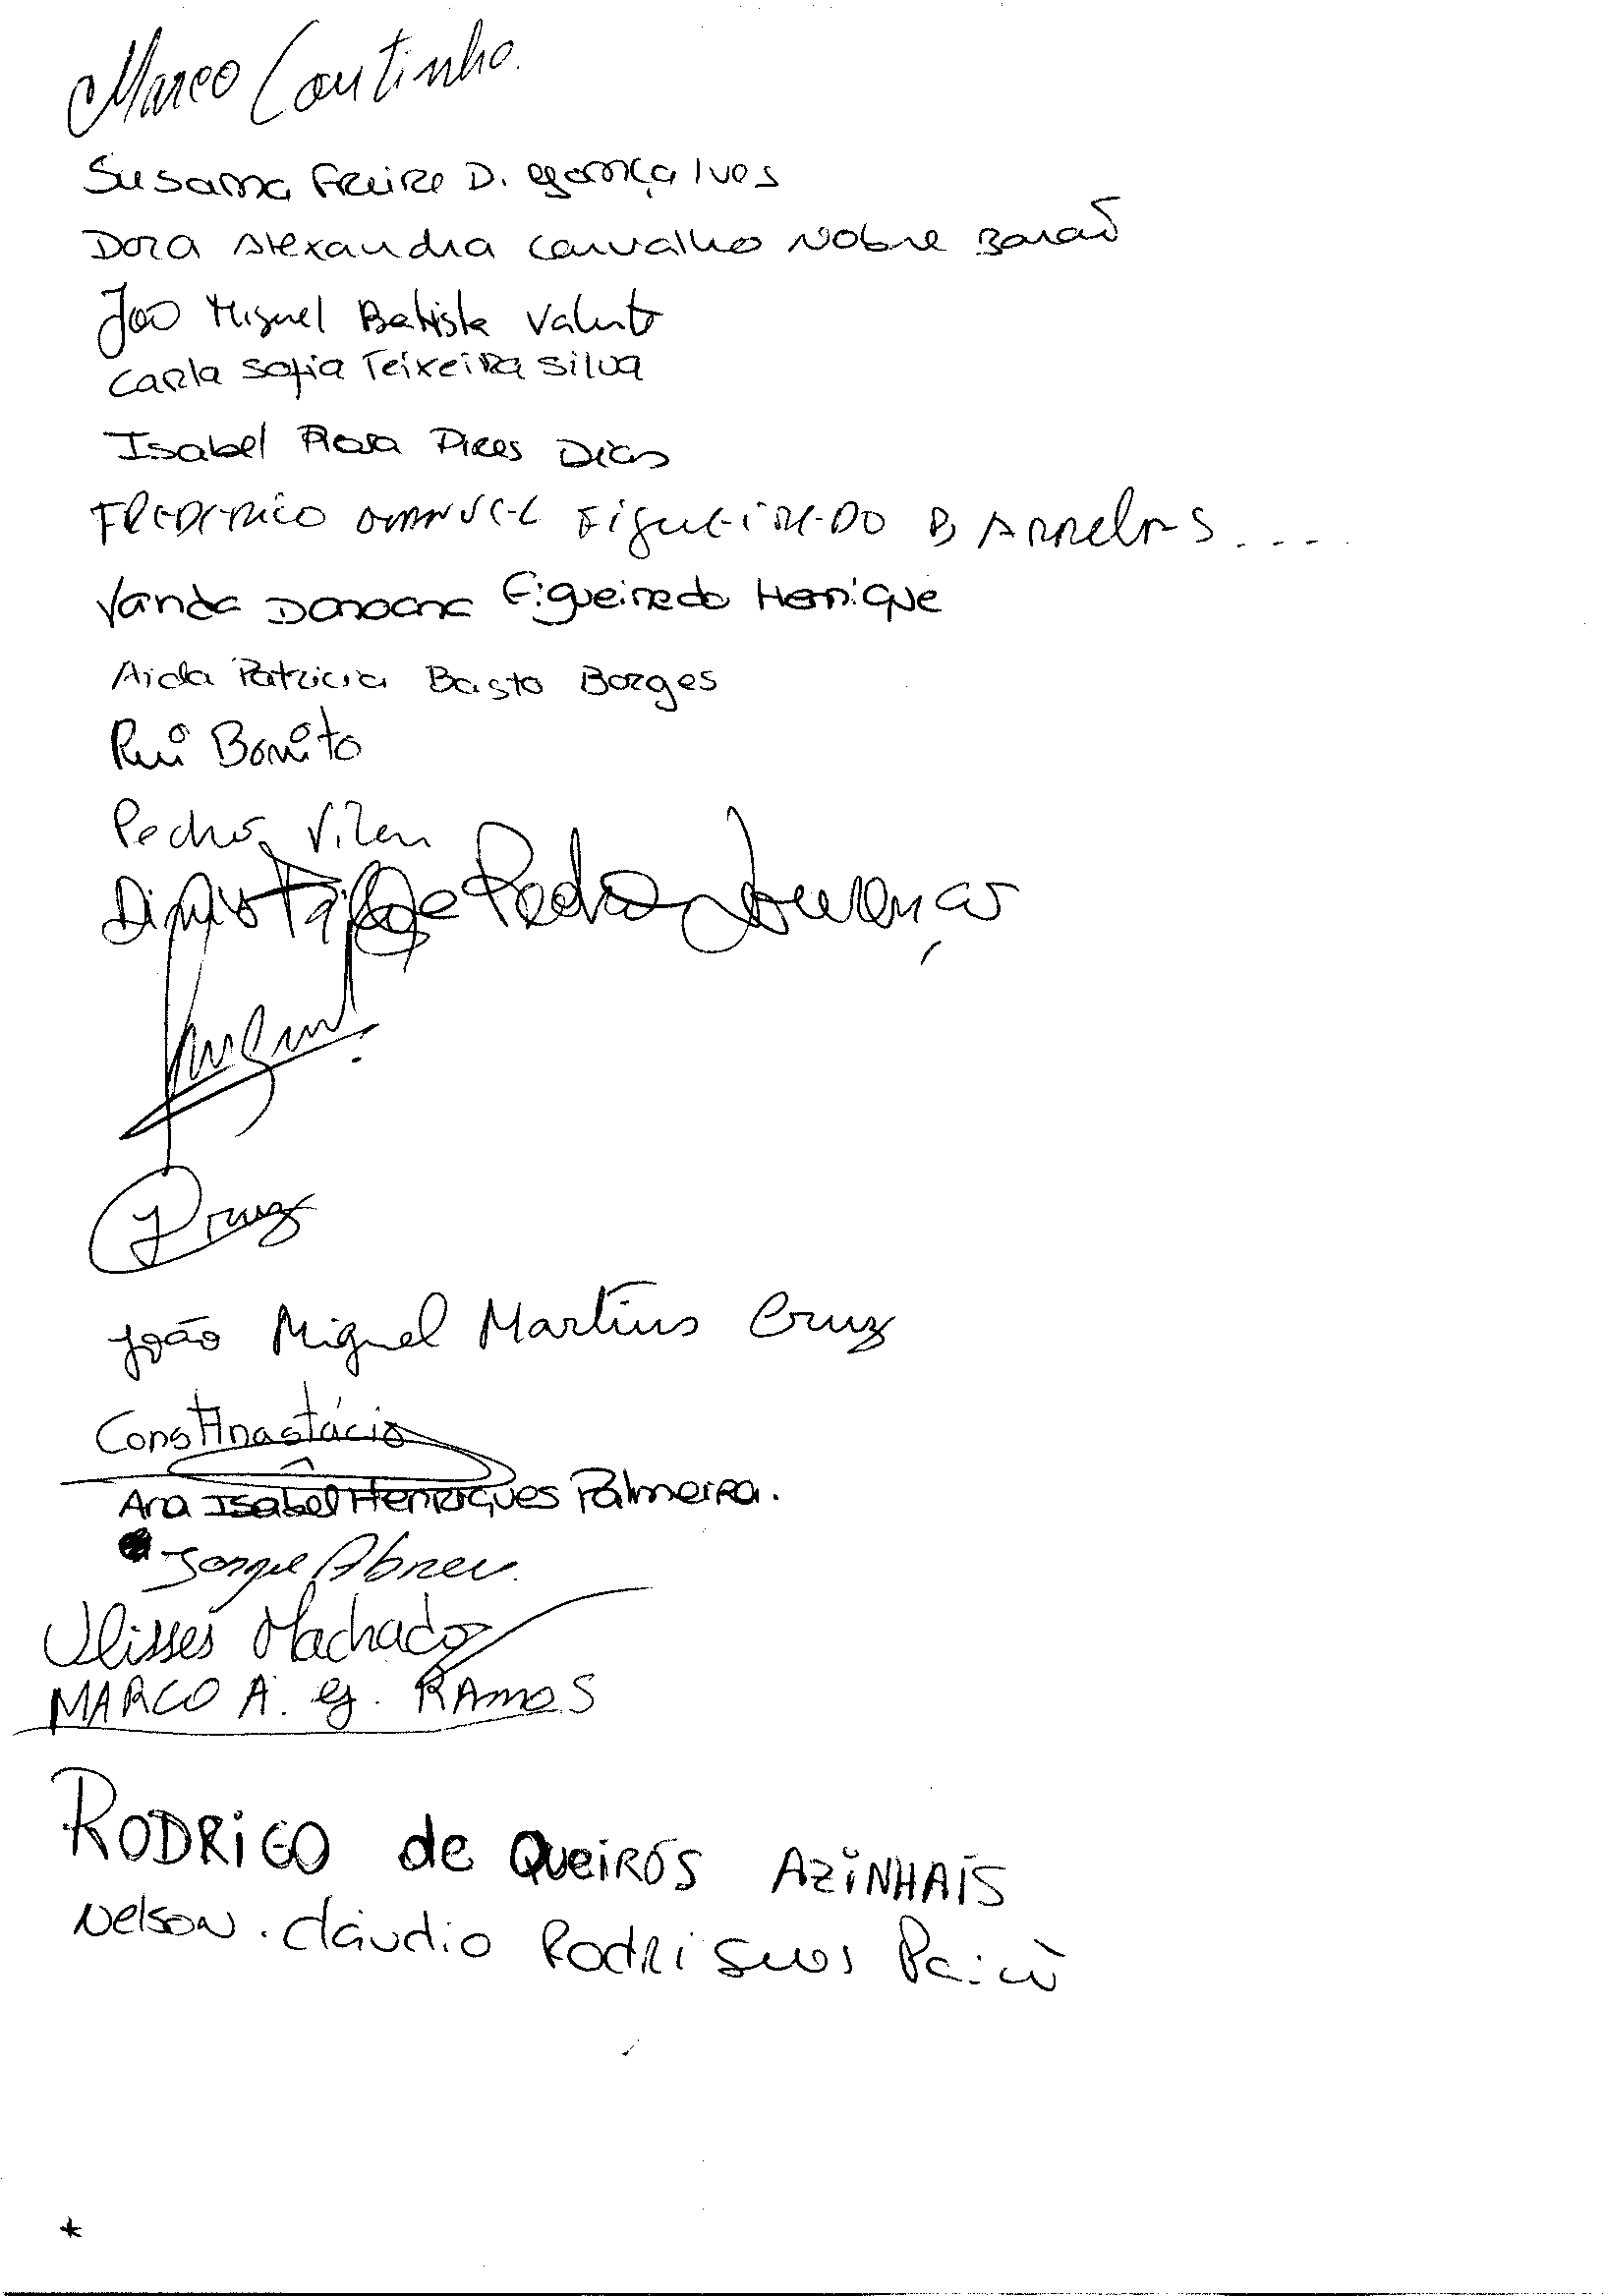 Marco Coutinho.
Susana Freire D. Gonçalves
Dora Alexandra Carvalho Nobre Barão
João Miguel Batista Valente
Carla Sofia Teixeira Silva
Isabel Rosa Pires Dias
FREDERICO MANUEL FIGUEIREDO BARRELAS....
Vanda Figueiredo Henrique
Aida Patricia Basto Borges
Rui Bonito
Pedro
Pedro Lourenço
JCruz
João Miguel Martins Cruz
ConstAnastácio
Ana Isabel Henriques Palmeira.
Jorge Abreu.
Ulisses Machado
MARCO A. G. RAMOS
RODRIGO de QUEIRÓS AZINHAIS
Nelson. Cláudio Rodrigues
*